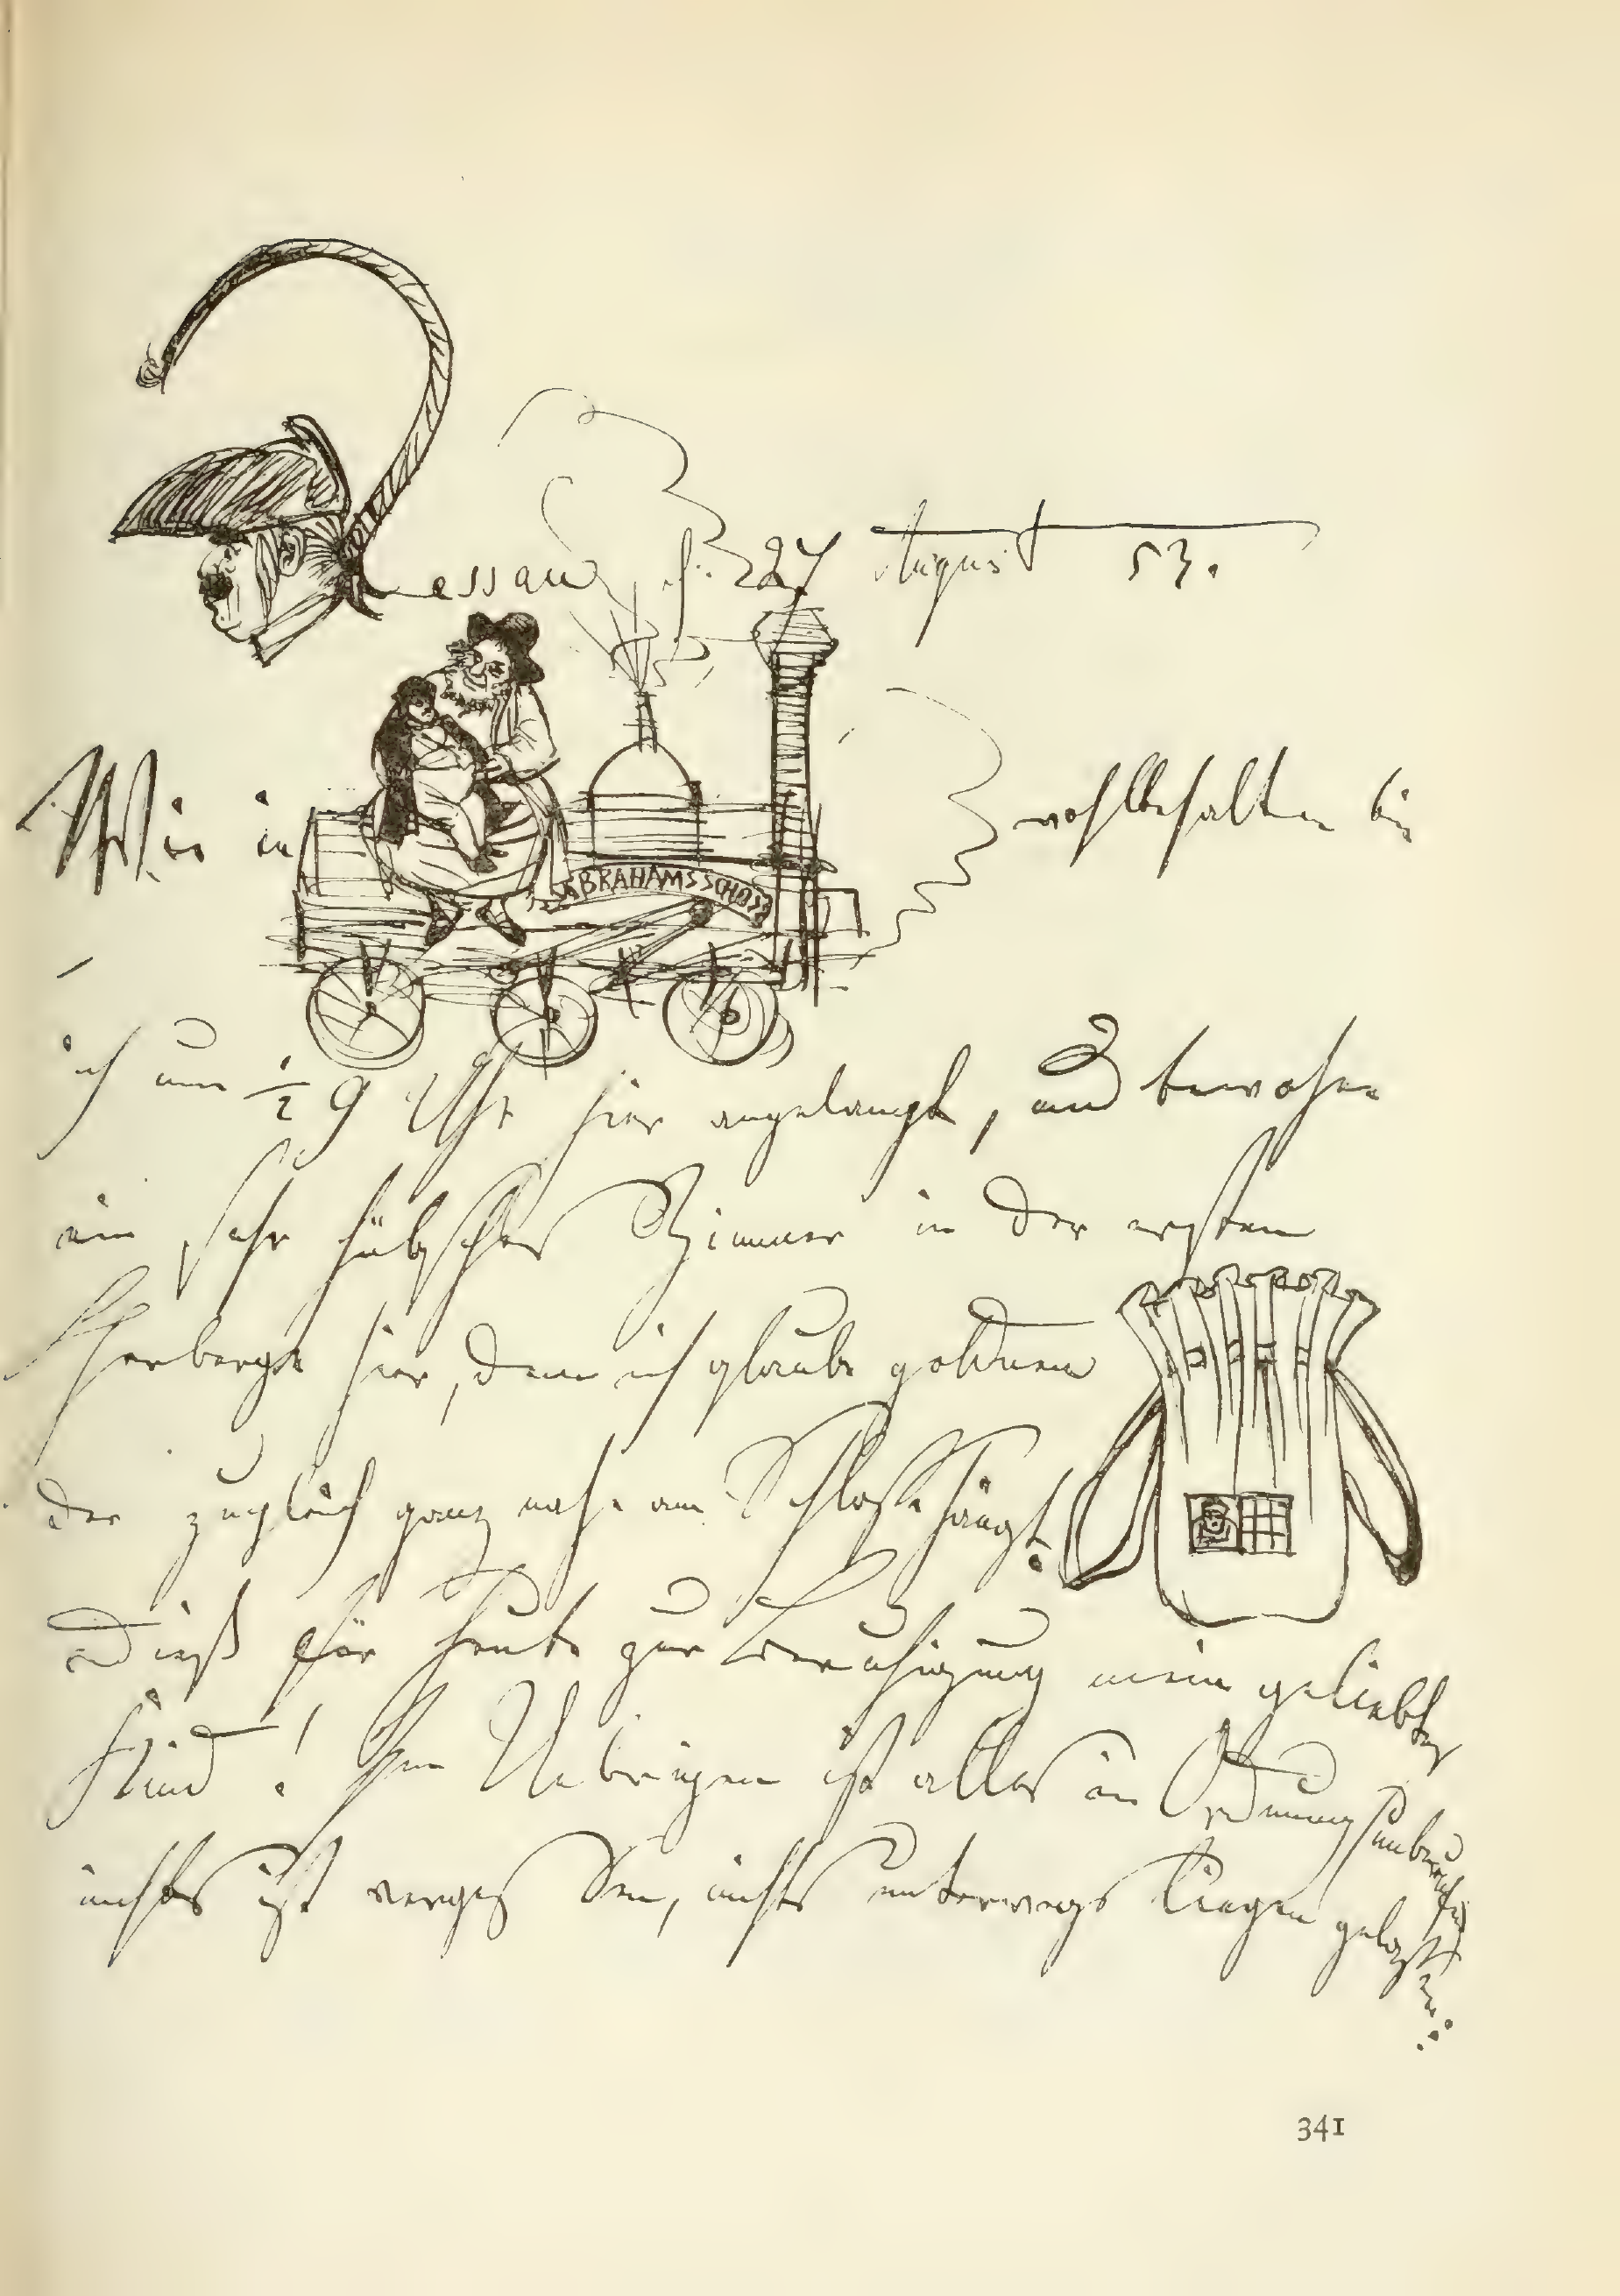 essau d. 27 August 53.
ABRAHAMSSCHOSS
Wie in wohlbehalten bin
ich um ½ 9 Uhr hier angelangt, und bewohne
ein sehr hübsches Zimmer in der ersten
Herberge hier, dem ich glaube goldnen
der zugleich ganz nahe am Schloße hängt.
Dieß für heute zur Beruhigung mein geliebtes
Kind! Im Uebrigen ist alles in Ordnung
nichts ist vergessen, nichts unterwegs liegen gelassen
341